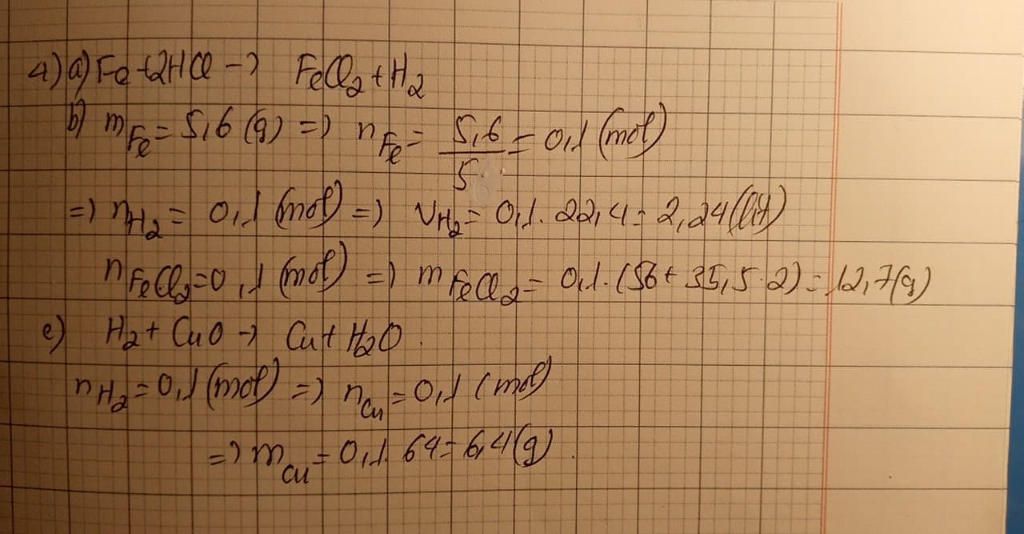 4) a) Fe + 2HCl -> FeCl2 + H2
b) mFe = 5,6 (g) => nFe = 5,6/5 = 0,1 (mol)
=> nH2 = 0,1 (mol) => VH2 = 0,1. 22,4 = 2,24 (lít)
nFeCl2 = 0,1 (mol) => mFeCl2 = 0,1. (56 + 35,5.2) = 12,7 (g)
c) H2 + CuO -> Cu + H2O.
nH2 = 0,1 (mol) => nCu = 0,1 (mol)
=> mCu = 0,1. 64 = 6,4 (g).